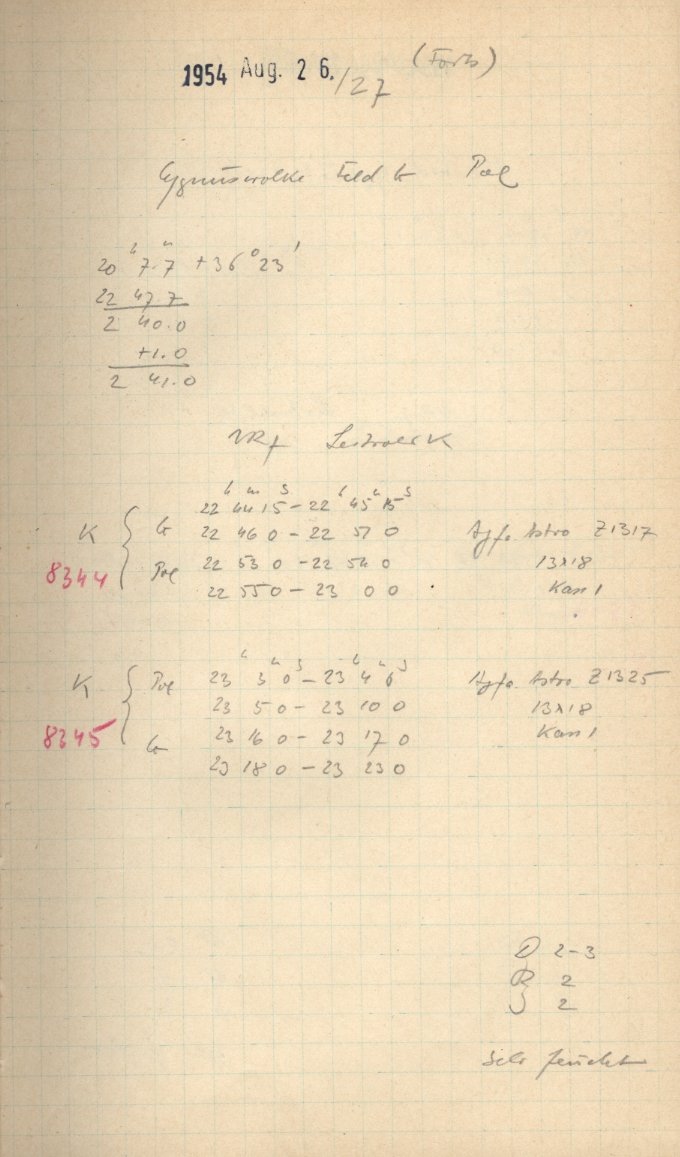 1954 Aug. 26./27 (Forts)
Cygnuswolke Feld Pol
20 h 7.7 m +36° 23'
22 47 7
2 40.0
+1.0
2 41.0
h m s h m s
22 44 15 – 22 45 15
K 22 46 0 – 22 51 0 Agfa Astro Z1317
8344 Pol 22 53 0 – 22 54 0 13x18
22 55 0 – 23 0 0 Kass 1
h m s h m s
K Pol 23 3 0 – 23 4 0 Agfa Astro Z1325
23 5 0 – 23 10 0 13x18
8345 23 16 0 – 23 17 0 Kass 1
23 18 0 – 23 23 0
D 2–3
R 2
S 2
Sehr feucht